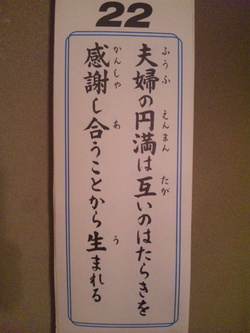 22
夫婦の円満は互いのはたらきを
ふうふ えんまん たが
感謝し合うことから生まれる
かんしゃ あ う